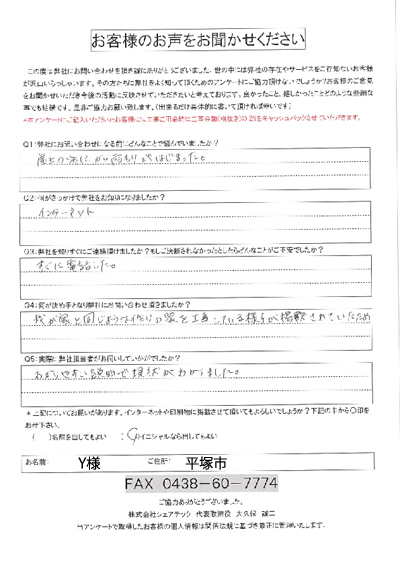 お客様のお声をお聞かせください
この度は弊社にお問い合わせを頂き誠にありがとうございました。世の中には弊社の存在やサービスをご存知ないお客様
が沢山いらっしゃいます。その方たちに弊社をよく知って頂くためのアンケートにご協力頂けないでしょうか?お客様のご意見
をお聞かせいただき今後の活動に反映させていただきたいと考えております。良かったこと、嬉しかったことどのような些細な
事でも結構です。是非ご協力お願い致します。(出来るだけ具体的に書いて頂ければ幸いです)
Q1:弊社にお問い合わせになる前にどんなことで悩んでいましたか?
雨もりではじまった。
Q2:何がきっかけで弊社をお知りになりましたか?
インターネット
Q3:弊社を知りすぐにご連絡頂けましたか?もしご決断されなかったとしたらどんなことがご不安でしたか?
すぐに電話した。
Q4:何が決め手となり弊社にお問い合わせ頂きましたか?
我が家と同じような作りの家を工事している様子が掲載されていたため
Q5:実際に弊社担当者がお伺いしていかがでしたか?
わかりやすい説明で現状がわかりました。
*上記についてお願いがあります。インターネットや印刷物に掲載させて頂いてもよろしいでしょうか?下記の中から○印を
お付下さい。
( )名前を出してもよい (○)イニシャルなら出してもよい
お名前: Y様 ご住所: 平塚市
FAX 0438-60-7774
ご協力ありがとうございました。
株式会社シェアテック 代表取締役 大久保 誠二
当アンケートで取得したお客様の個人情報は関係法規に基づき厳正に管理いたします。